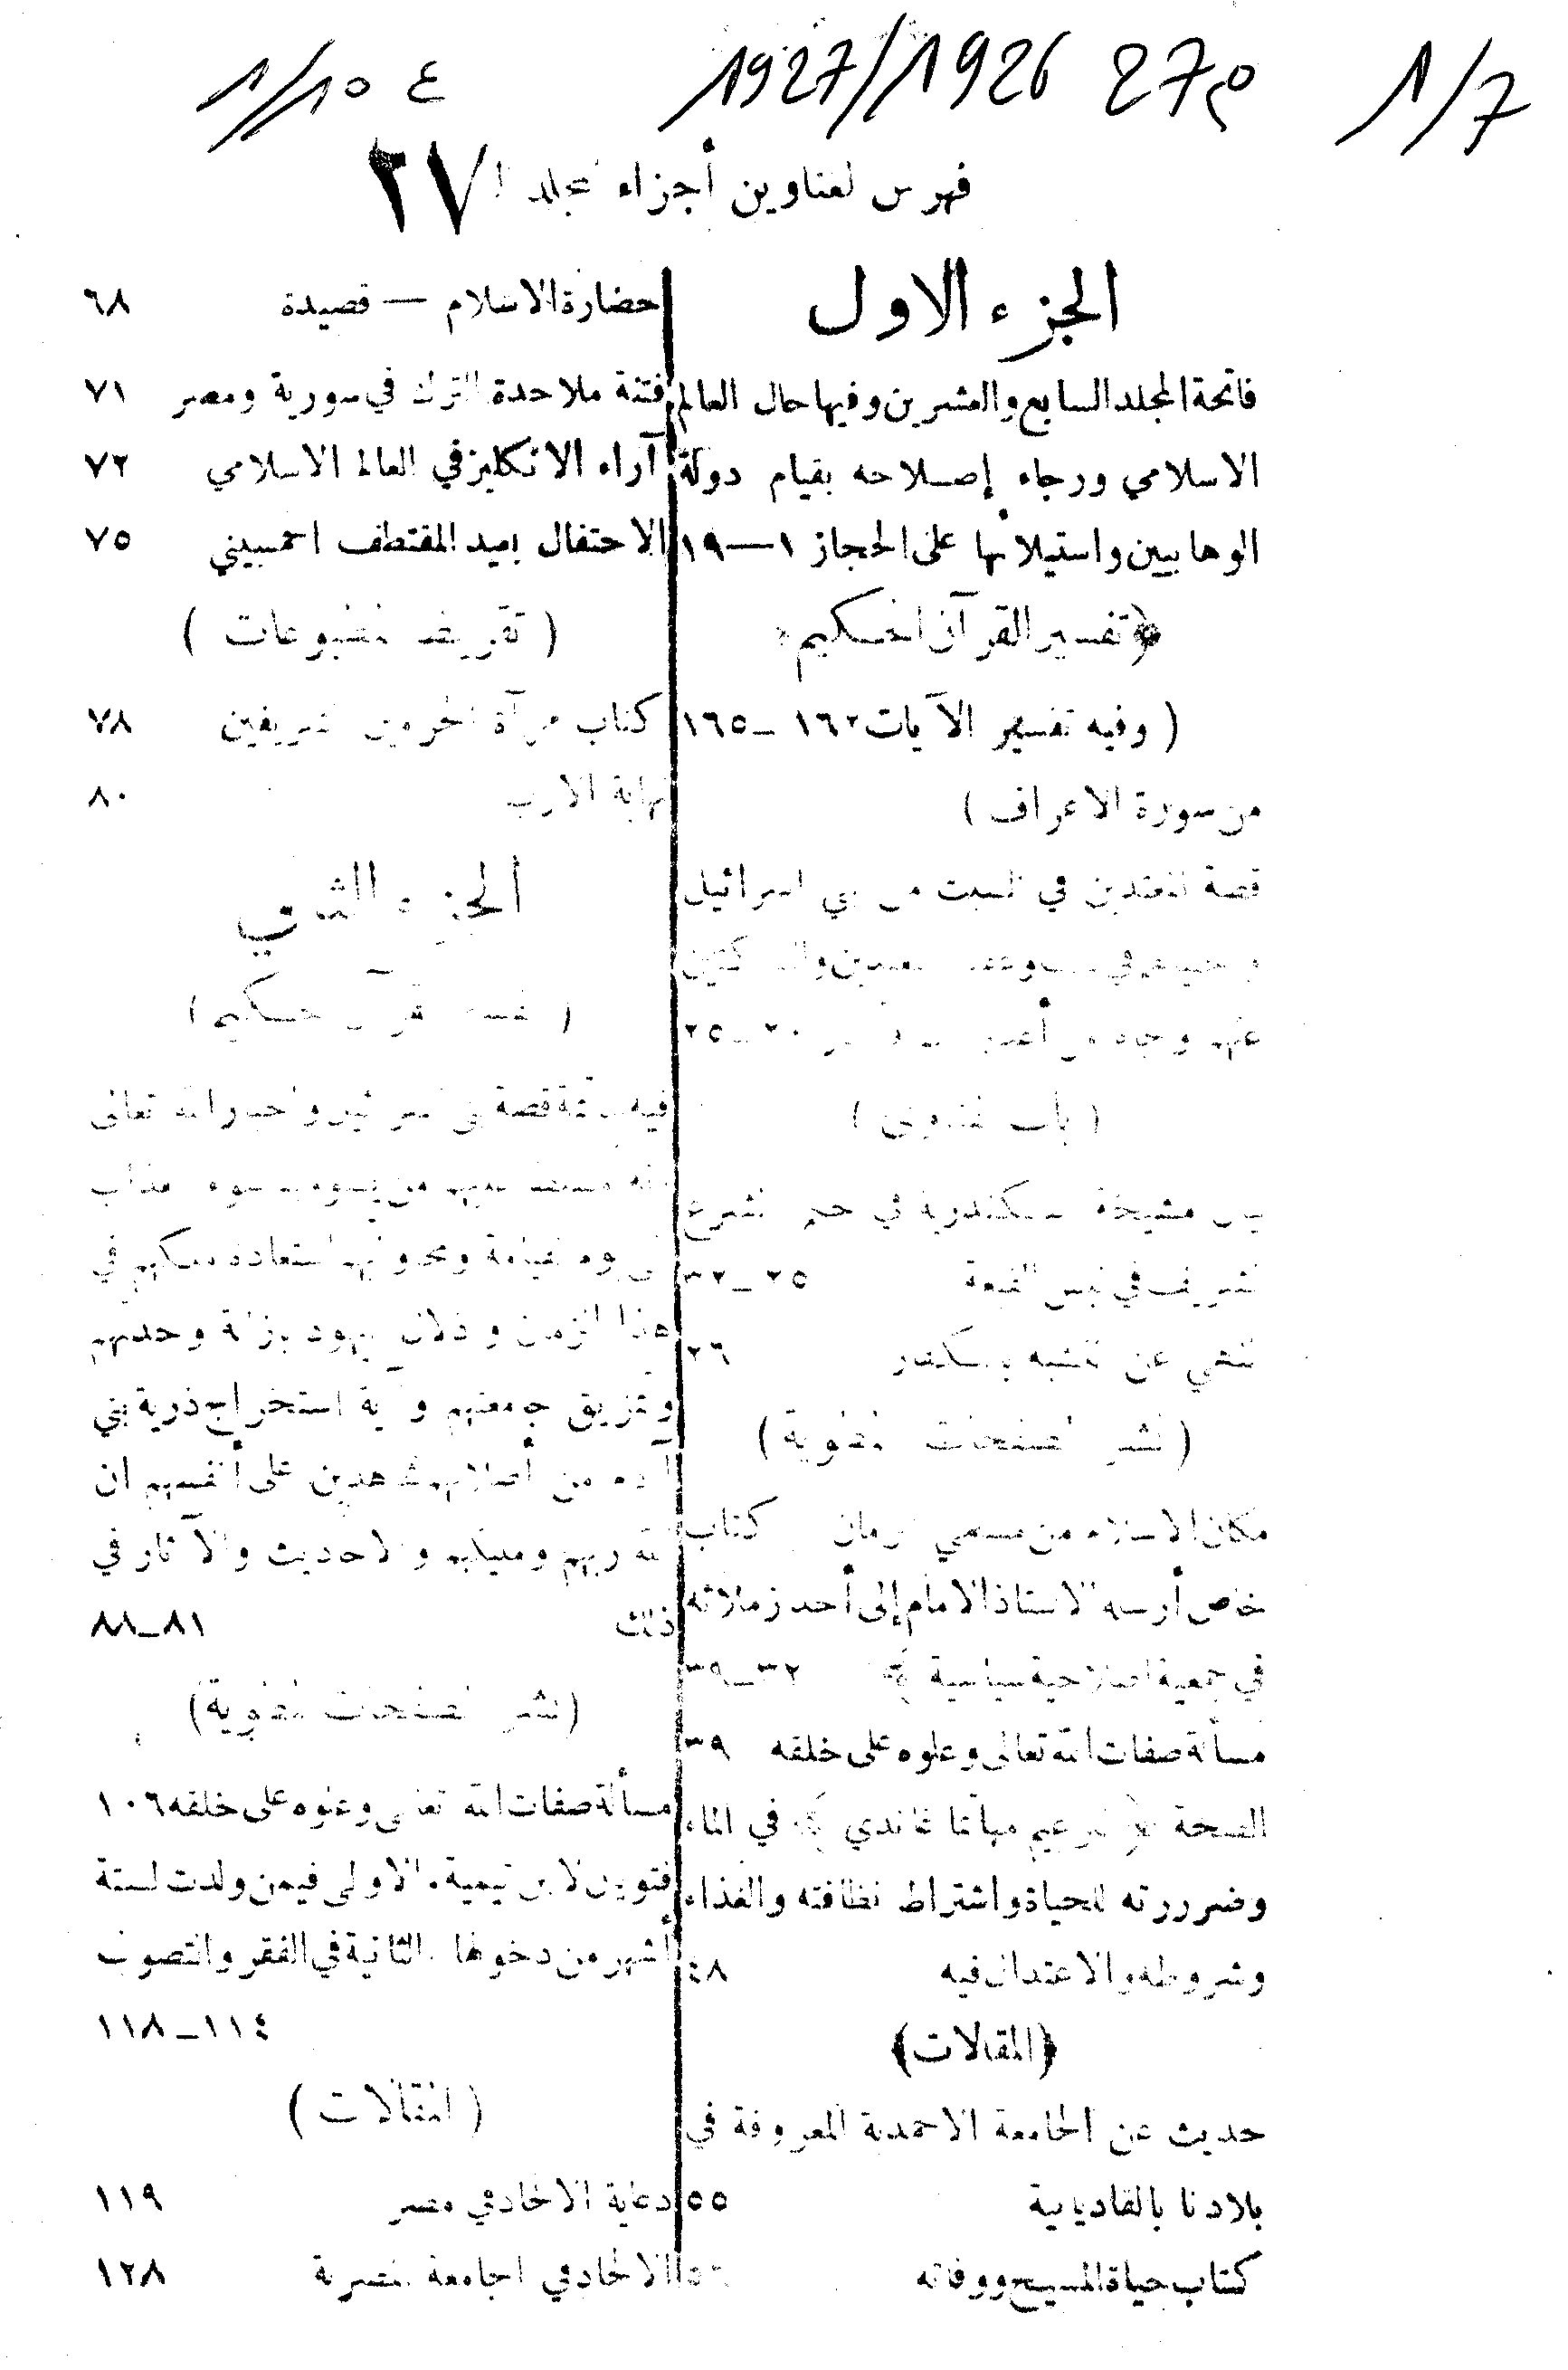 1/7
م27 1926/1927
ع 1/10
فهرس لعناوين أجزاء مجلد ال ٢٧
الجزء الاول
فاتحة المجلد السابع والعشرين وفيها حال العالم
الاسلامي ورجاء إصلاحه بقيام دولة
الوهابيين واستيلائها على الحجاز ١—١٩
﴿تفسير القرآن الحكيم﴾
( وفيه تفسير الآيات ١٦٢ – ١٦٥
من سورة الاعراف )
قصة المعتدين في السبت من بني اسرائيل
عنهم وجاه من ٢٠–٢٥
( باب الفتاوى )
بيان مشيخة الاسكندرية في حكم الشرع
الشريف في لبس القبعة ٢٥–٣٢
النهي عن التشبه بالكفار ٢٦
(نشر الصفحات المطوية)
مكان الاسلام من مسلمي الزمان كتاب
خاص أرسله الاستاذ الامام إلى أحد زملائه
في جمعية اصلاحية سياسية ٣٢–٣٩
مسألة صفات الله تعالى وعلوه على خلقه ٣٩
الصحة ﴿ للزعيم مهاتما غاندي ﴾ في الماء
وضررته للحياة واشتراط نظافته والغذاء
وشروطه والاعتدال فيه ٤٨
﴿المقالات﴾
حديث عن الجامعة الاحمدية المعروفة في
بلادنا بالقاديانية ٥٥
كتاب حياة المسيح ووفاته
حضارة الاسلام — قصيدة ٦٨
فتنة ملاحدة الترك في سورية ومصر ٧١
آراء الانكليز في العالم الاسلامي ٧٢
الاحتفال بعيد المقتطف الخمسيني ٧٥
( تقريظ المطبوعات )
كتاب مرآة الحرمين الشريفين ٧٨
نهاية الارب ٨٠
الجزء الثاني
( تفسير القرآن الحكيم )
فيه تتمة قصة بني اسرائيل واخبار الله تعالى
من يسومهم سوء العذاب
الى يوم القيامة ومحاولتهم استعادة ملكهم في
هذا الزمان وحدتهم
وتمزيق جامعتهم وآية استخراج ذرية بني
آدم من أصلابهم شاهدين على أنفسهم ان
الله ربهم ومليكهم والاحاديث والآثار في
ذلك ٨١–٨٨
(نشر الصفحات المطوية)
مسألة صفات الله تعالى وعلوه على خلقه ١٠٦
فتويان لابن تيمية. الاولى فيمن ولدت لستة
أشهر من دخولها. الثانية في الفقر والتصوف
١١٤–١١٨
( المقالات )
دعاية الالحاد في مصر ١١٩
الالحاد في الجامعة المصرية ١٢٨